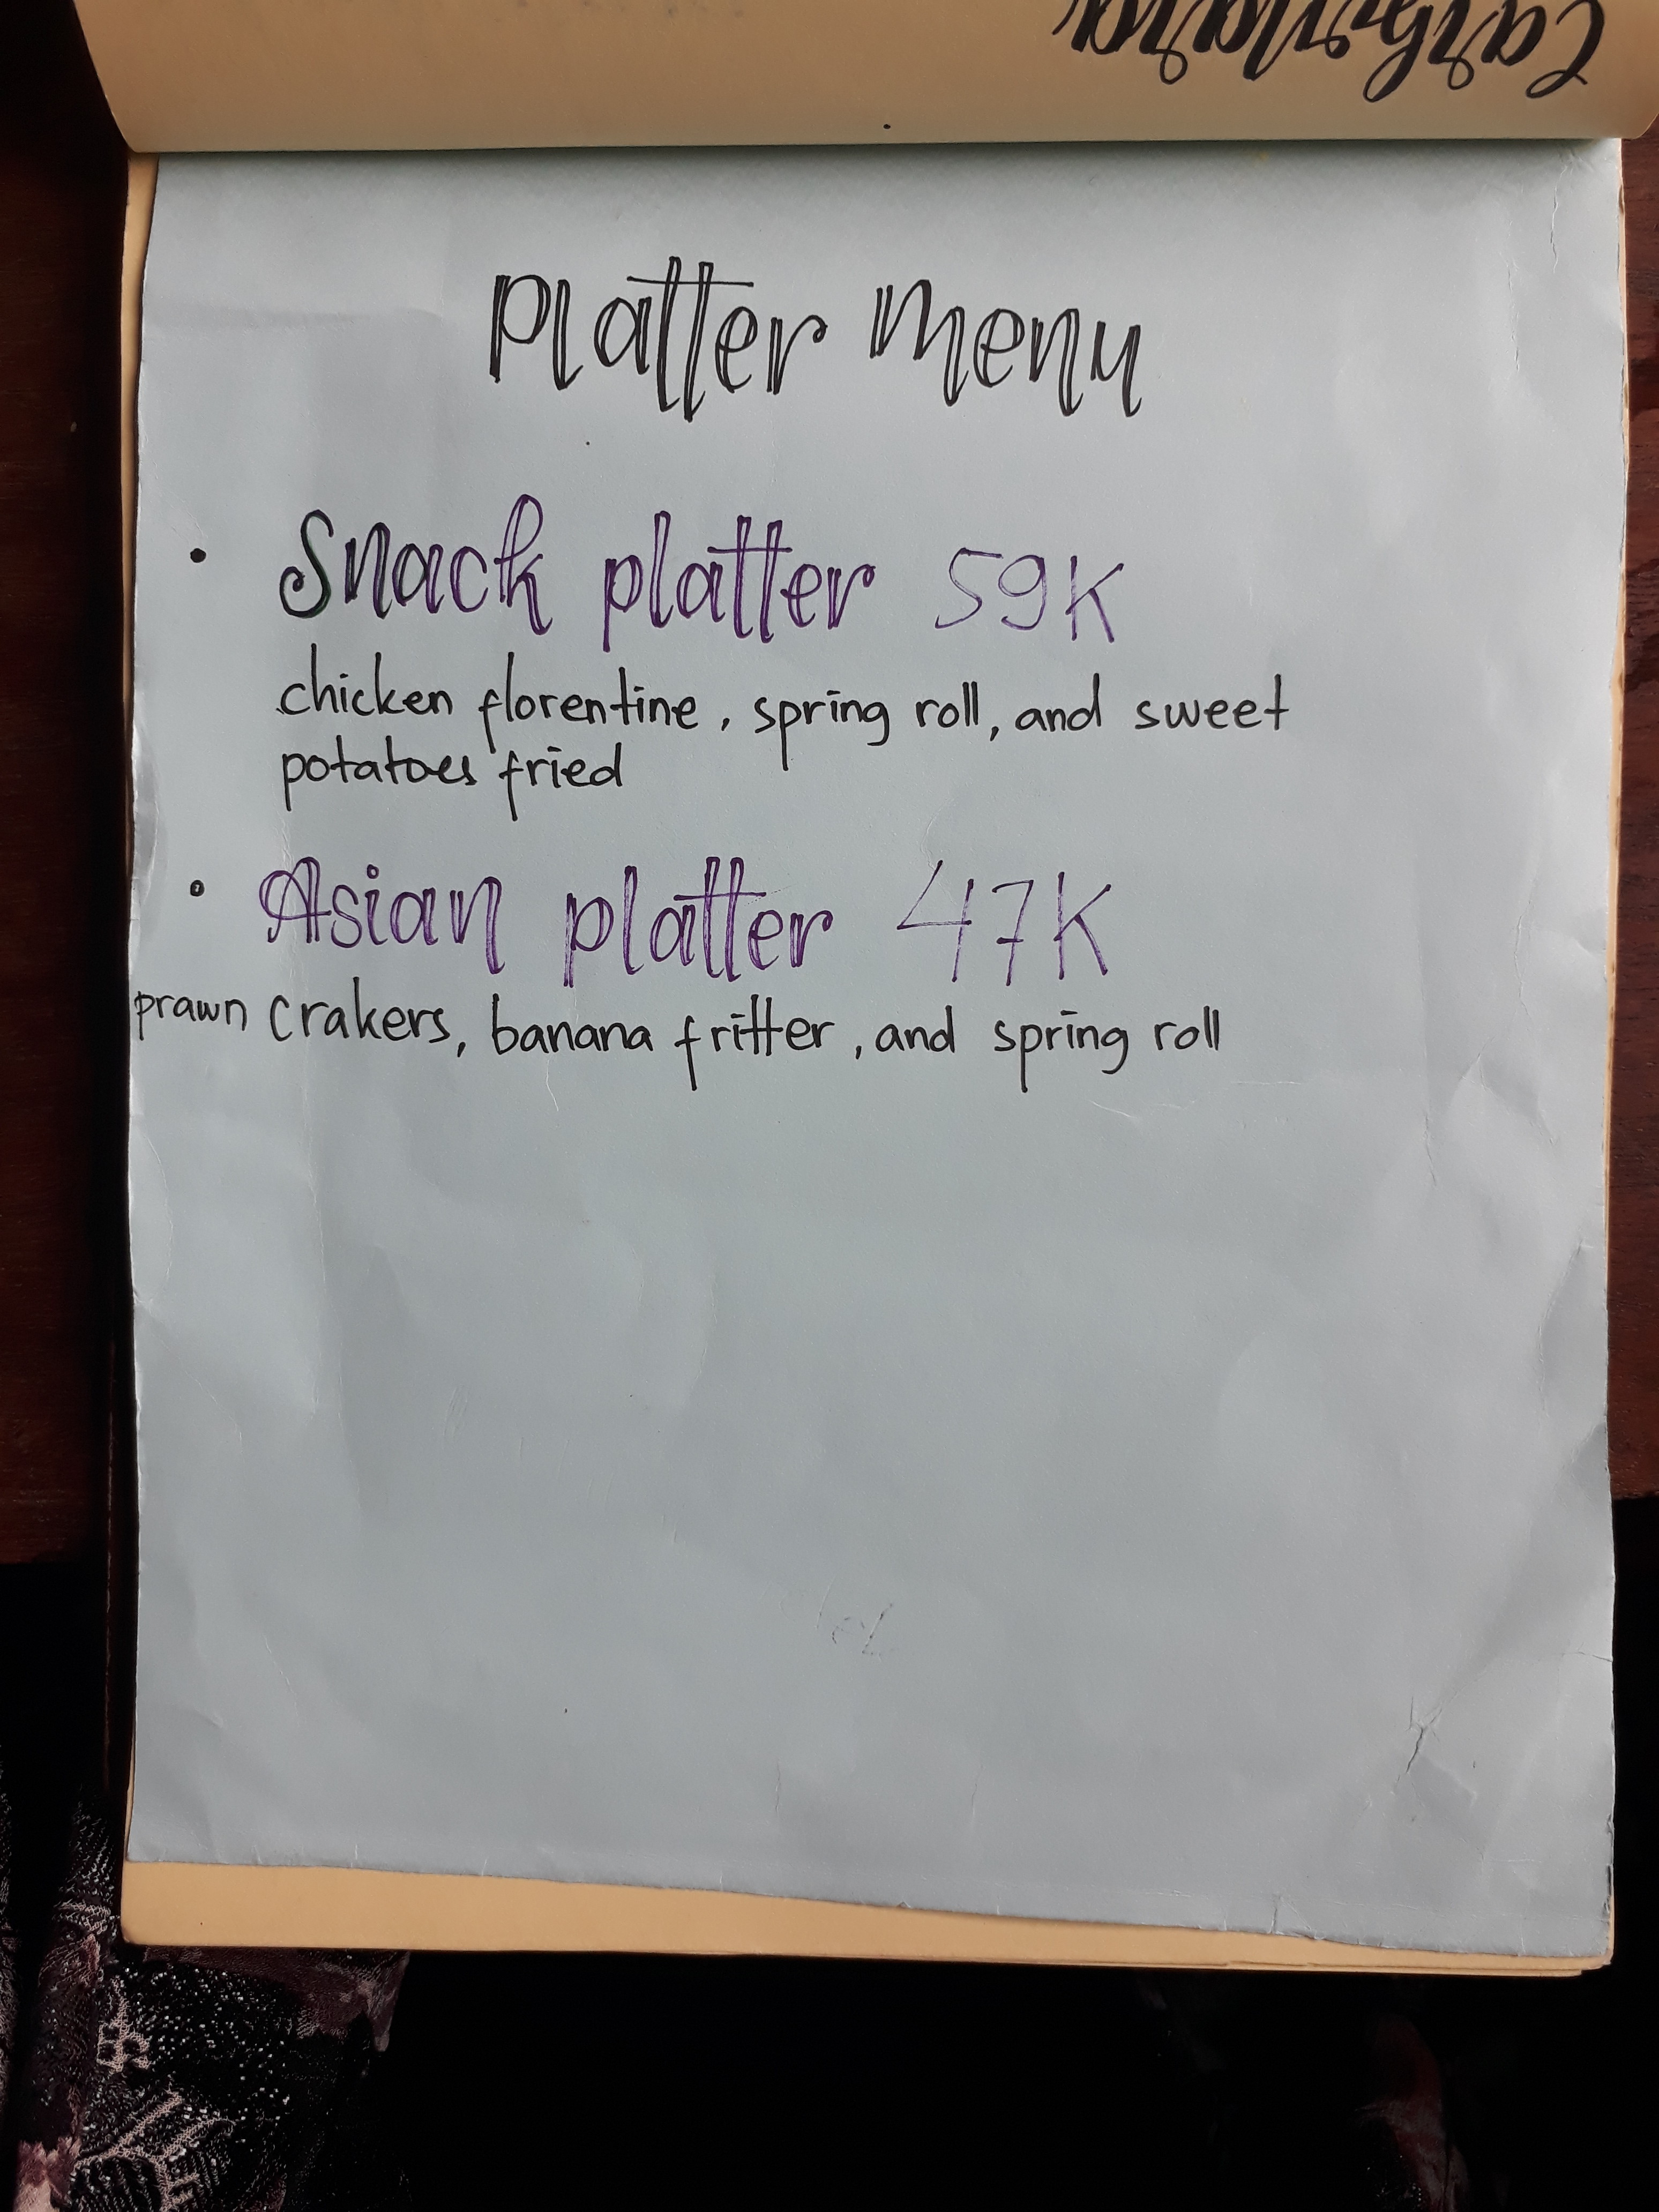 Carbonara
Platter Menu
• Snack platter 59K
chicken florentine, spring roll, and sweet
potatoes fried
• Asian platter 47K
prawn crakers, banana fritter, and spring roll